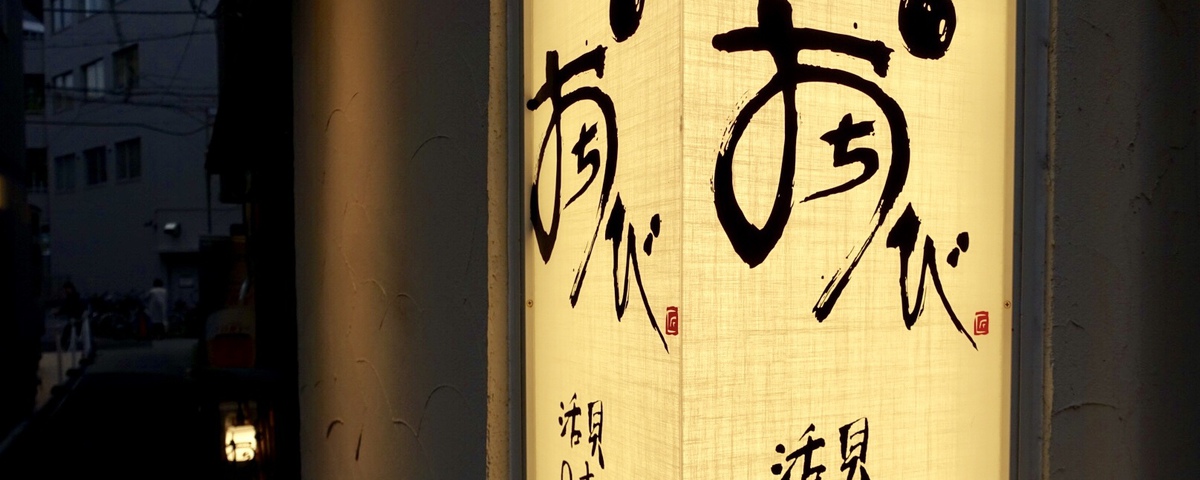 おちび
貝
活
おちび
貝
活